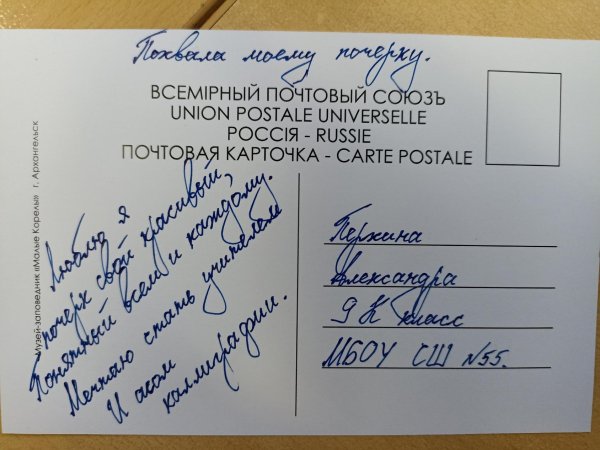 Похвала моему почерку.
ВСЕМІРНЫЙ ПОЧТОВЫЙ СОЮЗЪ
UNION POSTALE UNIVERSELLE
РОССІЯ - RUSSIE
ПОЧТОВАЯ КАРТОЧКА - CARTE POSTALE
Музей-заповедник «Малые Корелы» г. Архангельск
Люблю я
почерк свой красивый,
Понятный всем и каждому.
Мечтаю стать учителем
И асом
каллиграфии.
Пержина
Александра
9 К класс
МБОУ СШ №55.